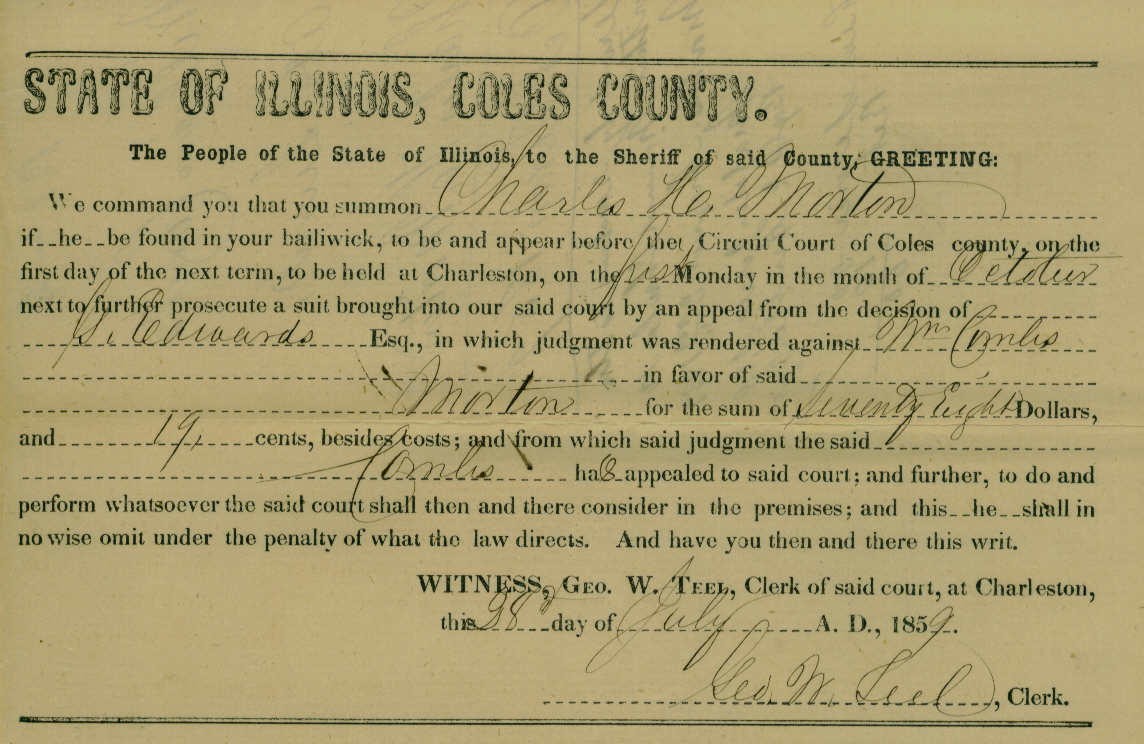 STATE OF ILLINOIS, COLES COUNTY.
The People of the State of Illinois, to the Sheriff of said County, GREETING:
We command you that you summon Charles H. Morton
if he be found in your bailiwick, to be and appear before the Circuit Court of Coles county, on the
first day of the next term, to be held at Charleston, on the first Monday in the month of October
next to further prosecute a suit brought into our said court by an appeal from the decision of
S. Edwards Esq., in which judgment was rendered against Wm Combs
in favor of said
Morton for the sum of seventy Eight Dollars,
and 19 cents, besides costs; and from which said judgment the said
Combs has appealed to said court; and further, to do and
perform whatsoever the said court shall then and there consider in the premises; and this he shall in
no wise omit under the penalty of what the law directs. And have you then and there this writ.
WITNESS, GEO. W. TEEL, Clerk of said court, at Charleston,
this 28th day of July A. D., 1859.
Geo. W. Teel, Clerk.